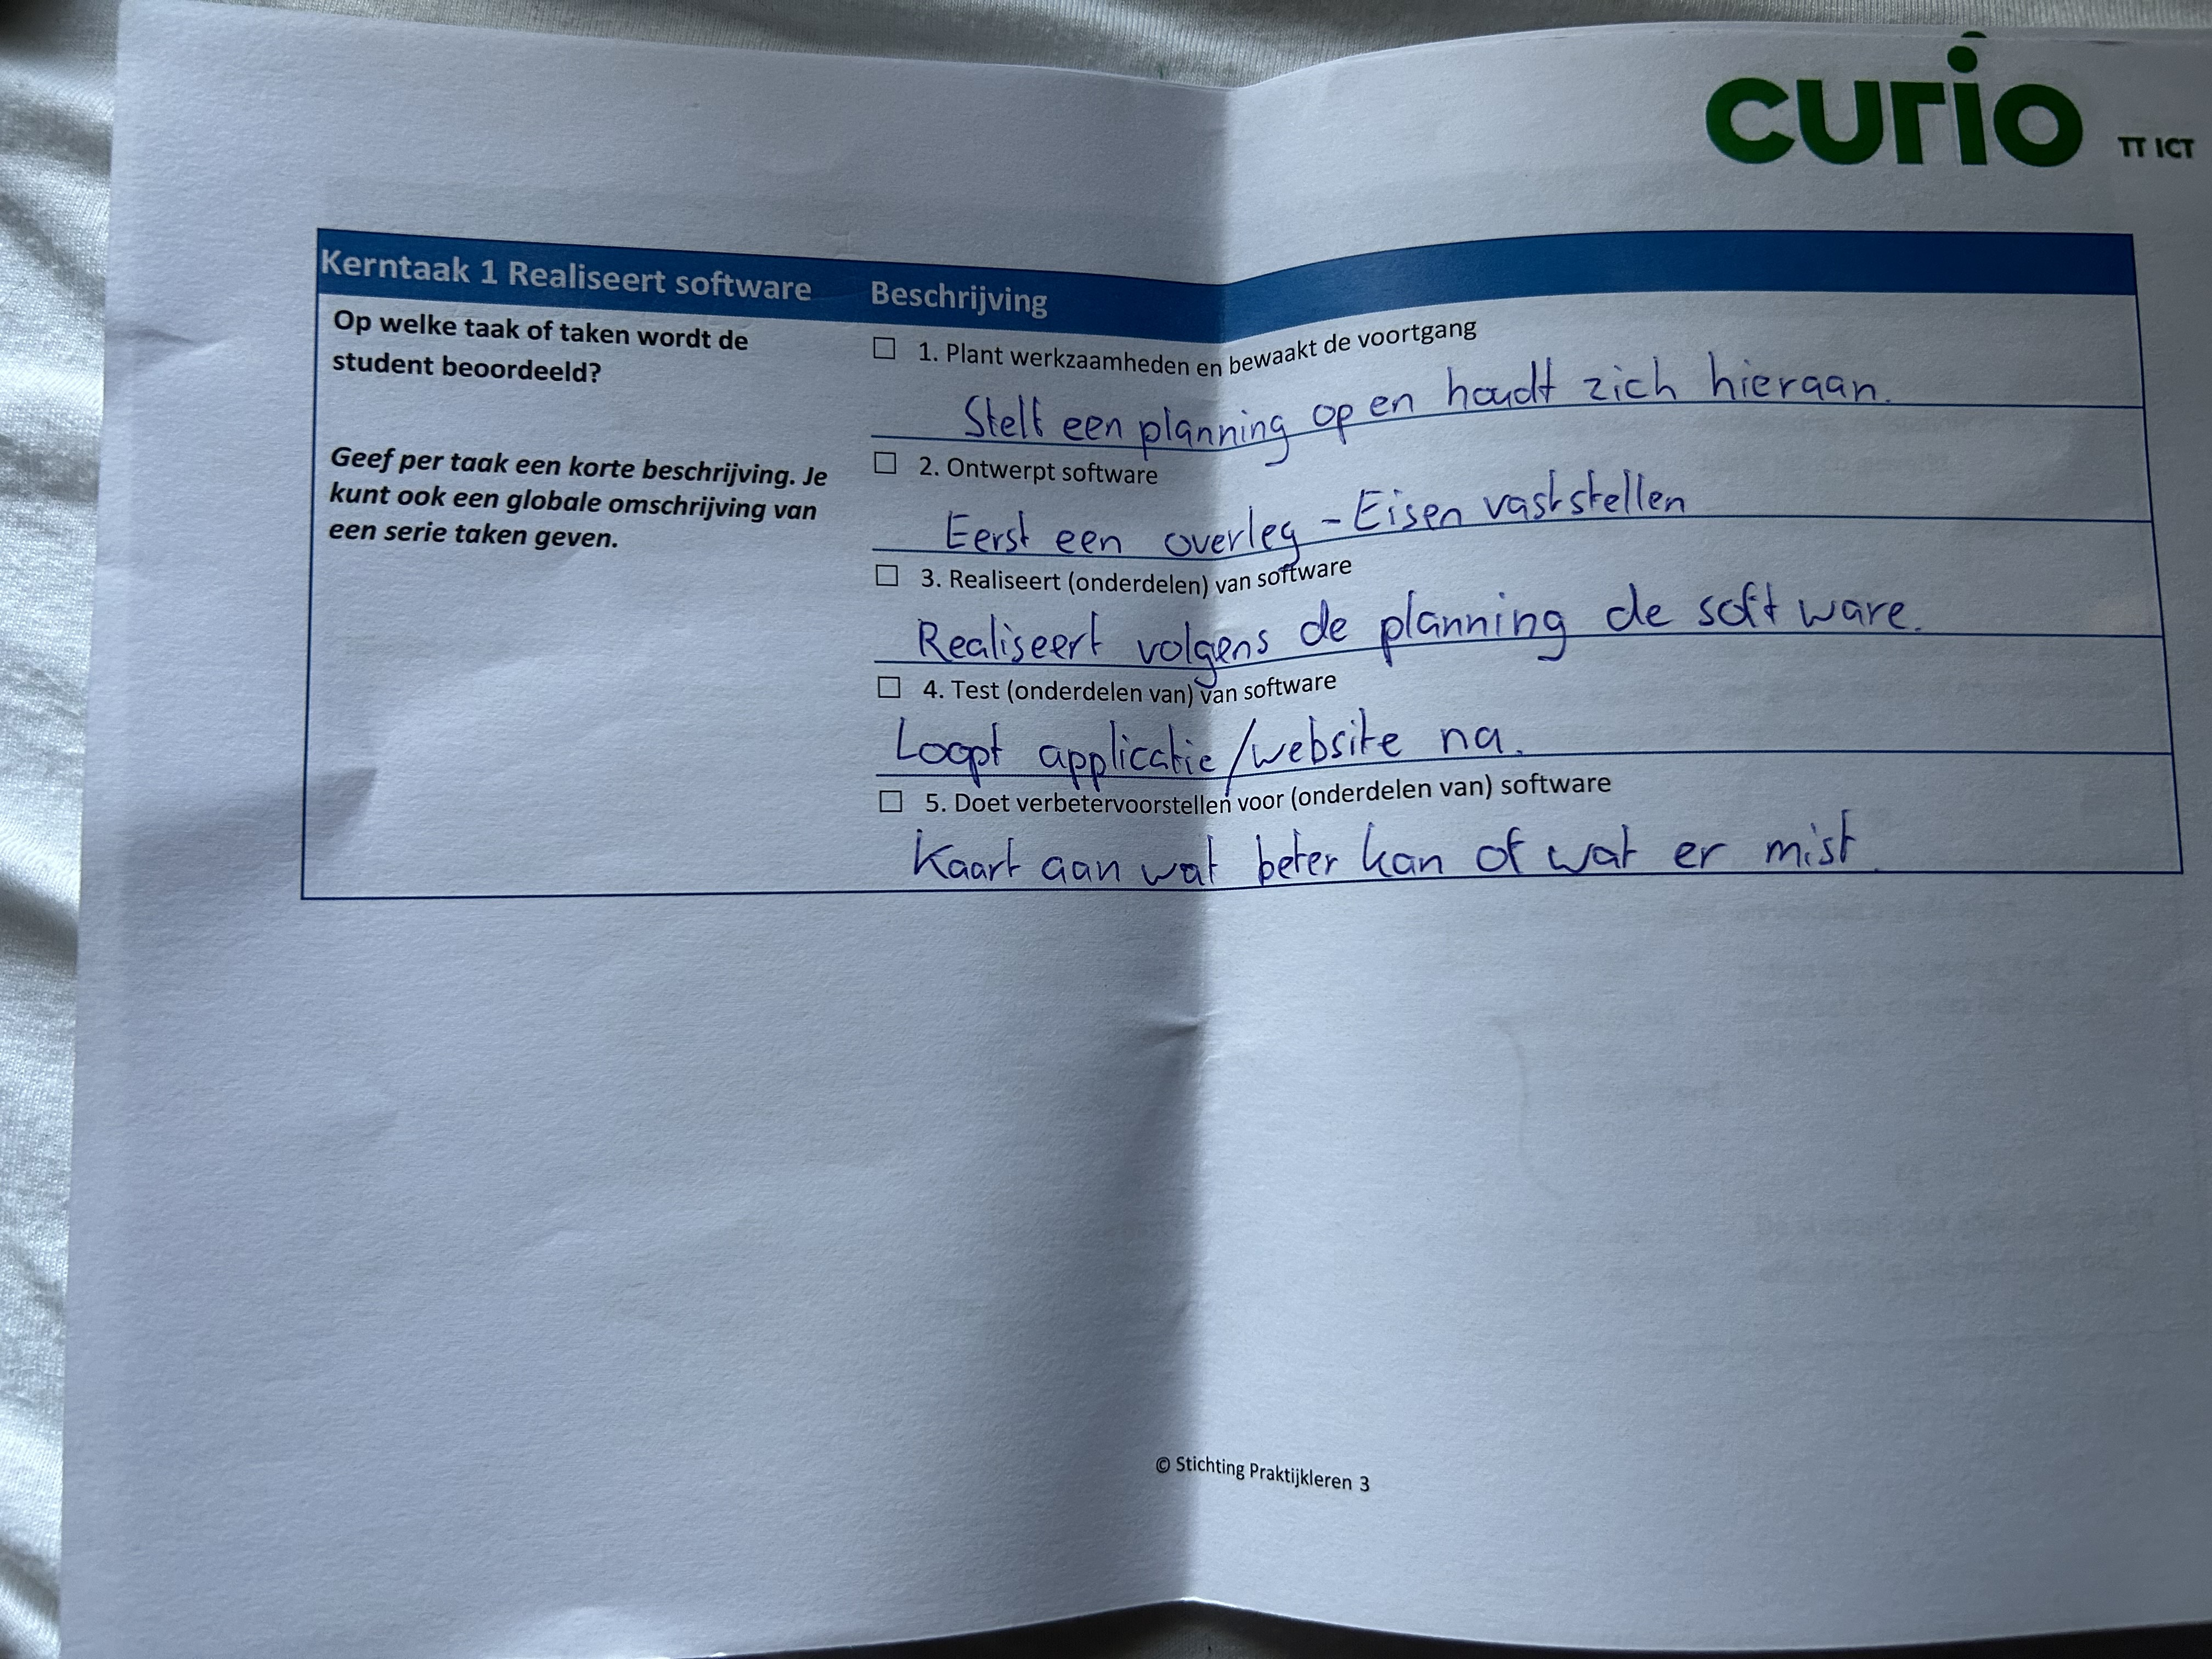 curio TT ICT
Kerntaak 1 Realiseert software Beschrijving
Op welke taak of taken wordt de
student beoordeeld?
Geef per taak een korte beschrijving. Je
kunt ook een globale omschrijving van
een serie taken geven.
☐ 1. Plant werkzaamheden en bewaakt de voortgang
Stelt een planning op en houdt zich hieraan.
☐ 2. Ontwerpt software
Eerst een overleg - Eisen vaststellen
☐ 3. Realiseert (onderdelen) van software
Realiseert volgens de planning de software.
☐ 4. Test (onderdelen van) van software
Loopt applicatie/website na.
☐ 5. Doet verbetervoorstellen voor (onderdelen van) software
Kaart aan wat beter kan of wat er mist.
© Stichting Praktijkleren 3